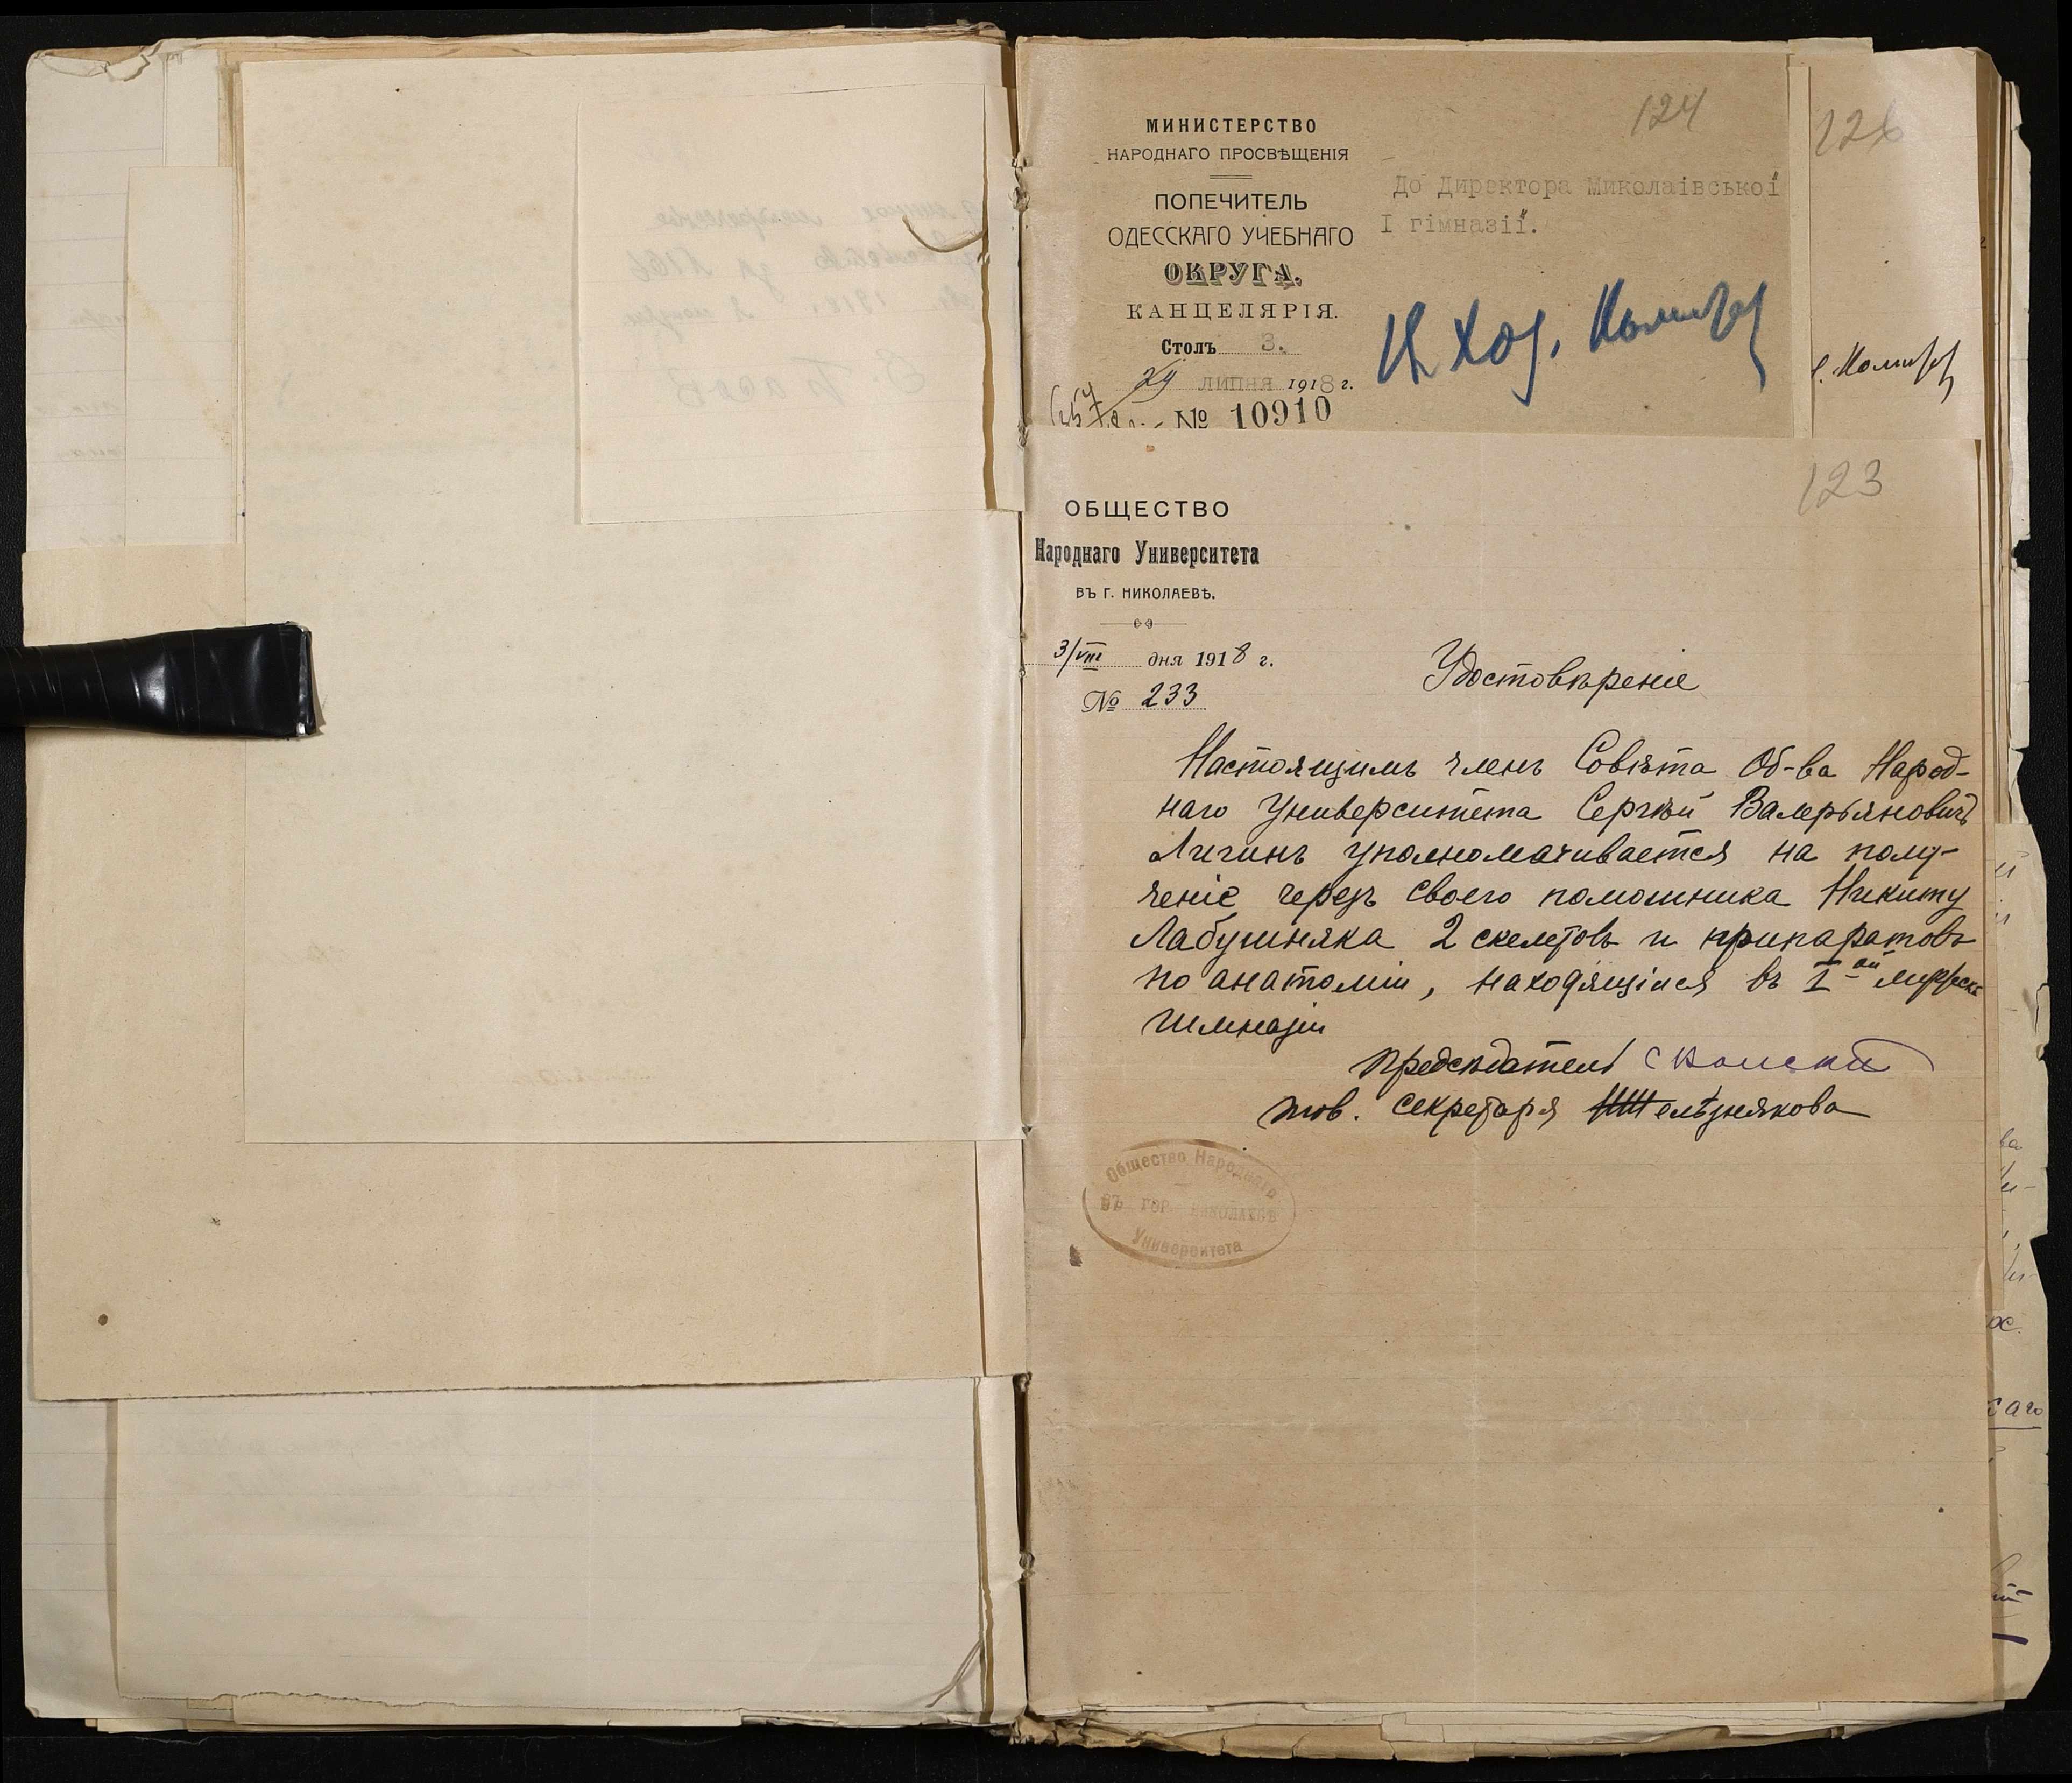 124
МИНИСТЕРСТВО
НАРОДНАГО ПРОСВѢЩЕНІЯ
ПОПЕЧИТЕЛЬ
ОДЕССКАГО УЧЕБНАГО
ОКРУГА.
КАНЦЕЛЯРІЯ.
Столъ 3.
29 липня 1918 г.
№ 10910
До Директора Миколаівської
І гімназії.
123
ОБЩЕСТВО
Народнаго Университета
ВЪ Г. НИКОЛАЕВѢ.
3/VIII дня 1918 г.
№ 233
Удостовѣреніе
Настоящимъ членъ Совѣта Об-ва Народ-
наго Университета Сергѣй Валерьяновичъ
Лигинъ уполномачивается на полу-
ченіе черезъ своего помошника Никиту
Лабушняка 2 скелетовъ и припаратовъ
по анатоміи, находящіися въ I ой
гимназіи
Предсѣдатель
тов. секретаря
Общество Народнаго
ВЪ ГОР. НИКОЛАЕВѢ
Университета